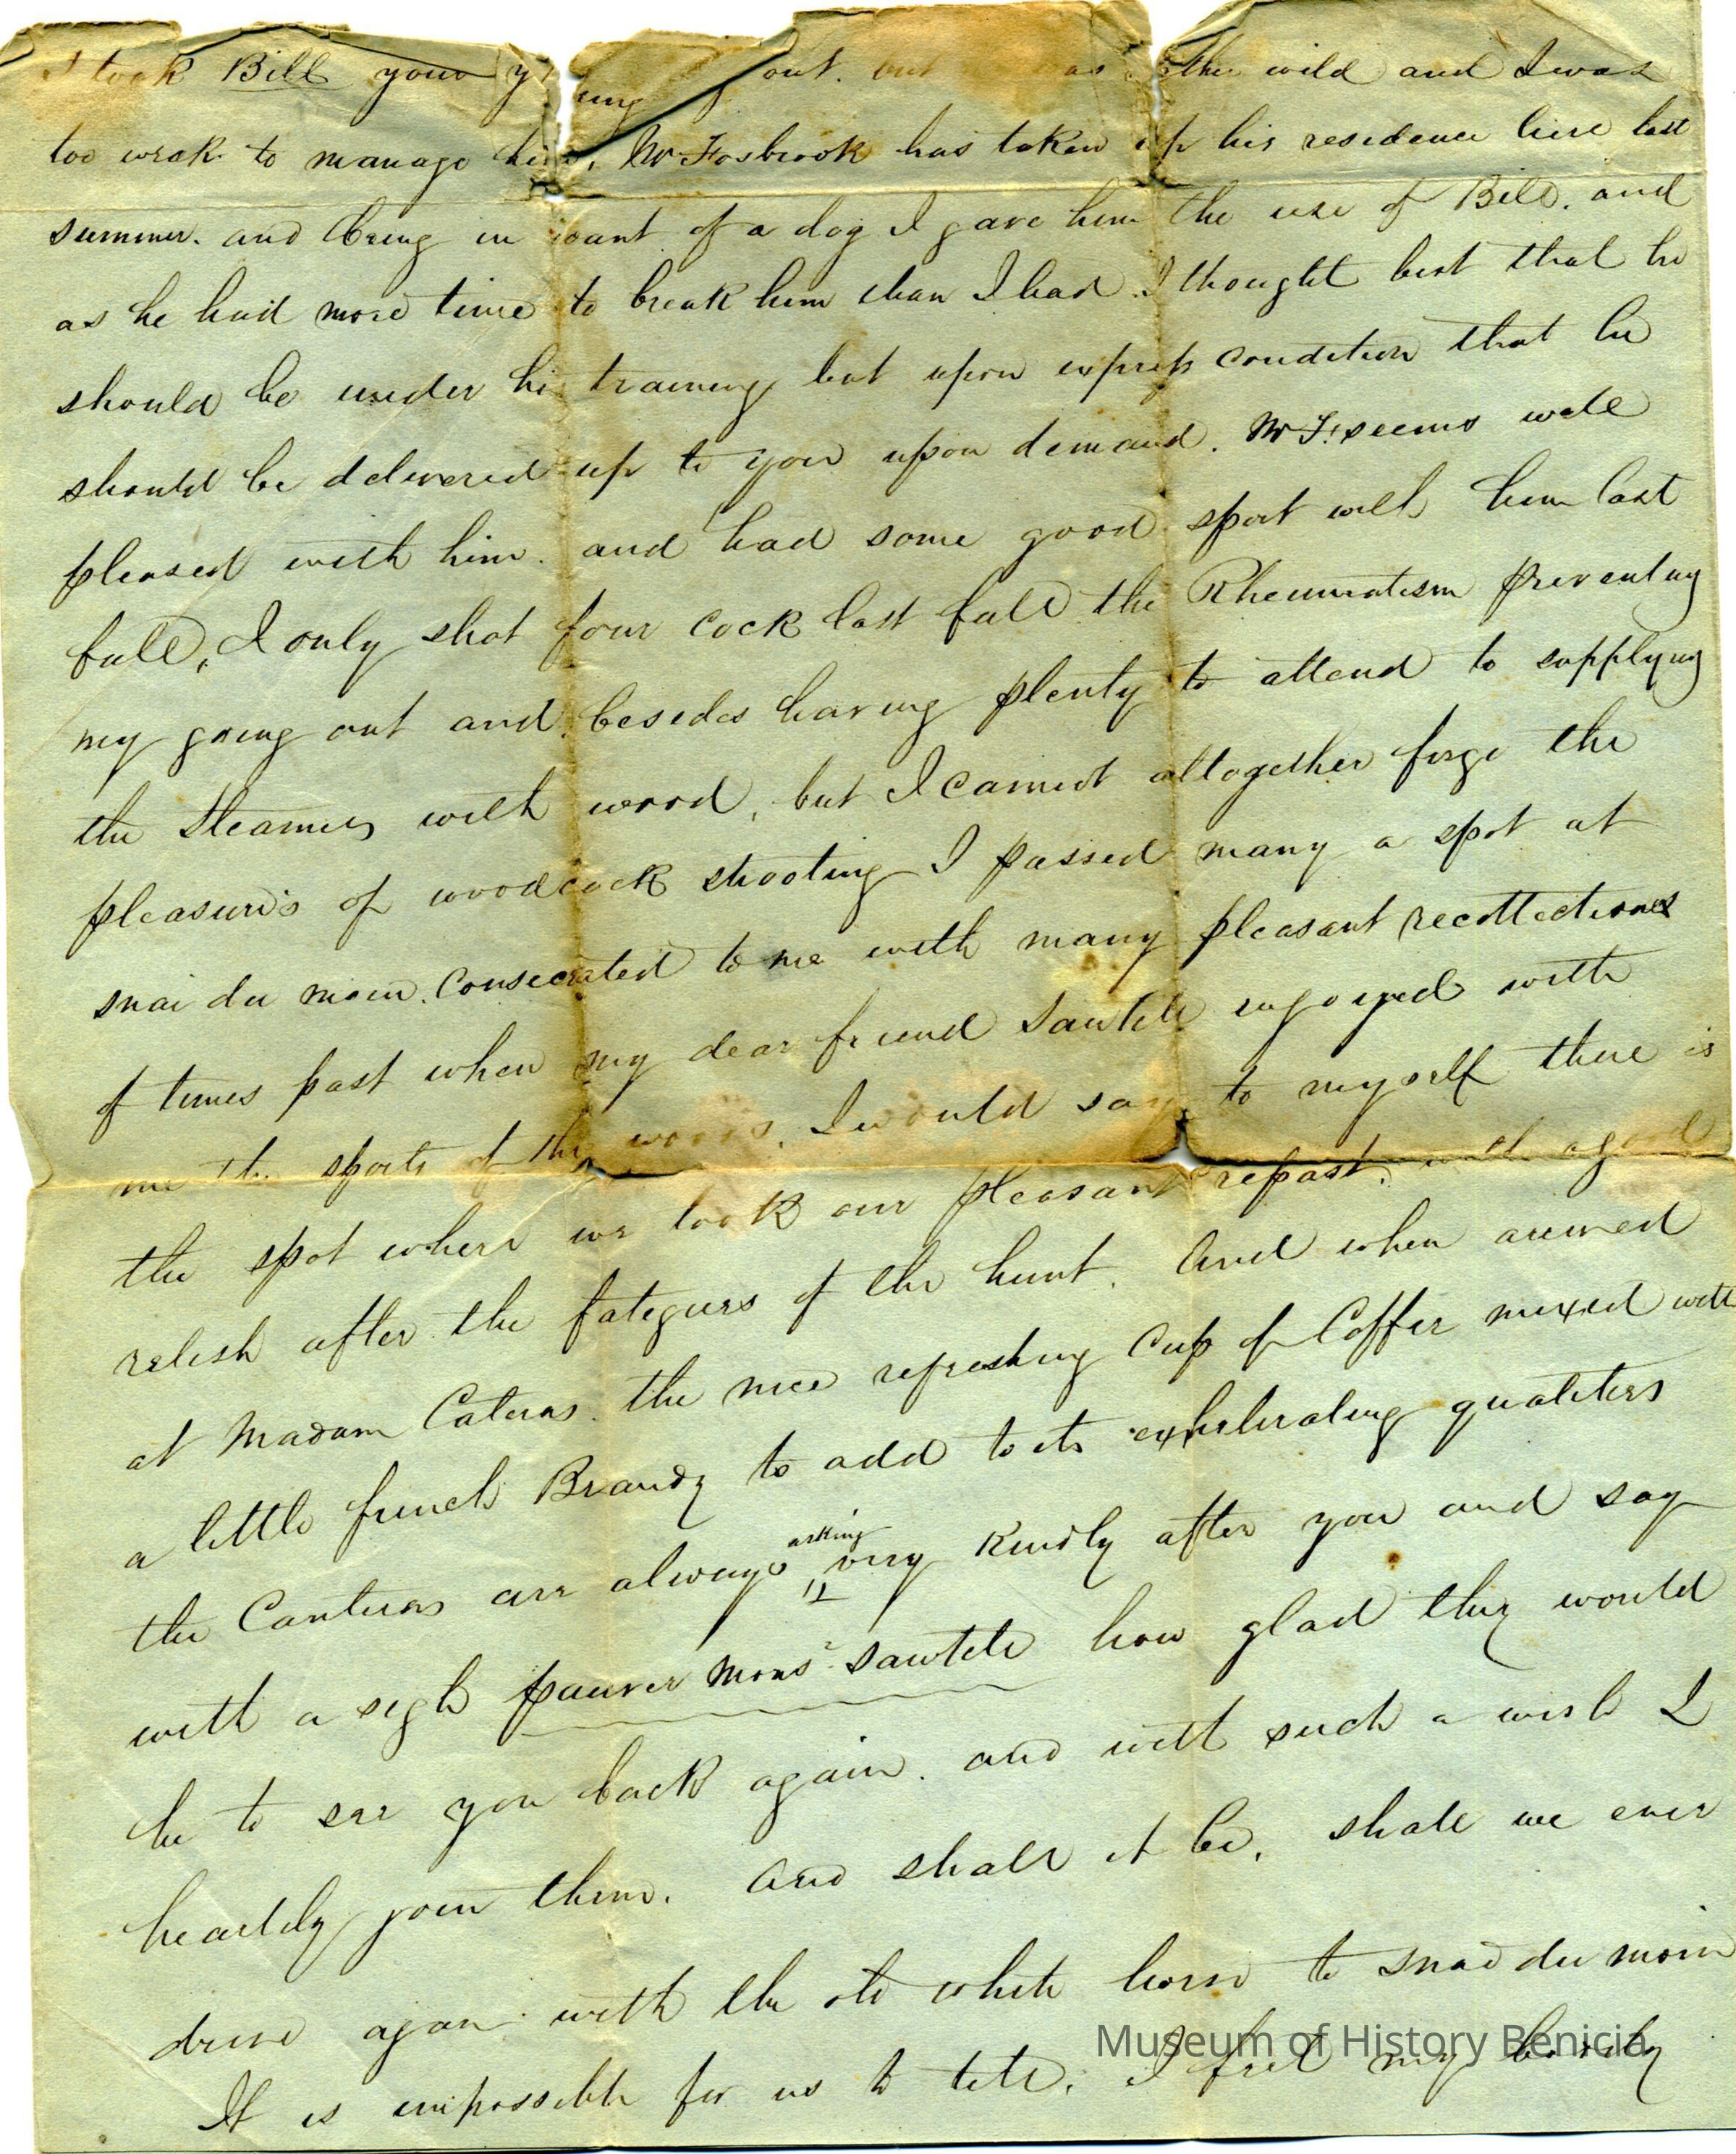 I took Bill your y ung out. but as the wild and I was
too weak to manage him, Mr Fosbrook has taken up his residence here last
summer. and being in want of a dog I gave him the use of Bill. and
as he had more time to break him than I had I thought best that he
should be under his training but upon express condition that he
should be delivered up to you upon demand. Mr F. seems well
pleased with him. and had some good sport with him last
fall, I only shot four cock last fall the Rheumatism preventing
my going out and besides having plenty to attend to supplying
the Steamers with wood, but I cannot altogether forge the
pleasures of woodcock shooting I passed many a spot at
snai du moin. Consecrated to me with many pleasant recollections
of times past when my dear friend Sawtele enjoyed with
me the sports of the woods. I would say to myself there is
the spot where we took our pleasant repast, with a good
relish after the fatigues of the hunt. And when arrived
at Madam Cateras. the nice refreshing Cup of Coffee mixed with
a little french Brandy to add to its exhilerating qualities
the Canteras are always asking very Kindly after you and say
with a sigh pauver Mons Sawtele how glad they would
be to see you back again. and with such a wish I
heartily join them. And shall it be, shall we ever
drive again with the old white horse to snai du moin
It is impossible for us to tele. I feel my bodily
Museum of History Benicia